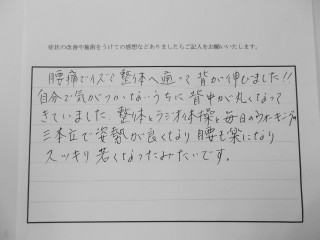 症状の改善や施術をうけての感想などありましたらご記入をお願いいたします。
腰痛でイズミ整体へ通って背が伸びました!!
自分で気がつかないうちに背中が丸くなって
きていました。整体とラジオ体操と毎日のウォーキングの
三本立で姿勢が良くなり腰も楽になり
スッキリ若くなったみたいです。